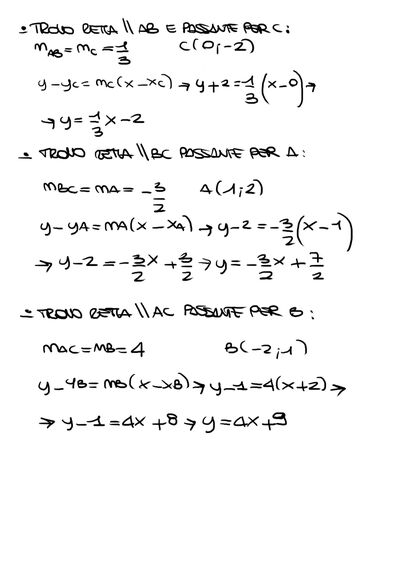 • TROVO RETTA // AB E PASSANTE PER C:
mAB = mC = 1/3 C(0;-2)
y-yc = mc(x-xc) → y+2 = 1/3(x-0) →
→ y = 1/3x-2
• TROVO RETTA // BC PASSANTE PER A:
mBC = mA = -3/2 A(1;2)
y-yA = mA(x-xA) → y-2 = -3/2(x-1)
→ y-2 = -3/2x + 3/2 → y = -3/2x + 7/2
• TROVO RETTA // AC PASSANTE PER B:
mAC = mB = 4 B(-2;1)
y-yB = mB(x-xB) → y-1 = 4(x+2) →
→ y-1 = 4x+8 → y = 4x+9